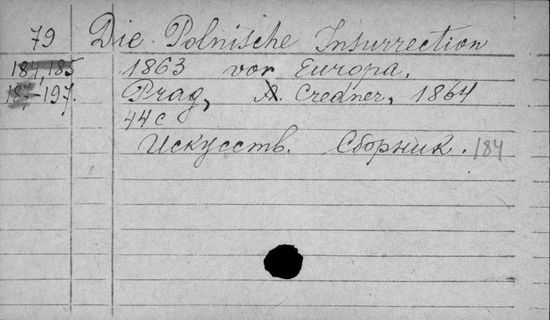 79 Die Polnische Insurrection
184,185 1863 vor Europa.
187-197. Prag, A. Credner, 1864
44 с
Искусств. Сборник. 184